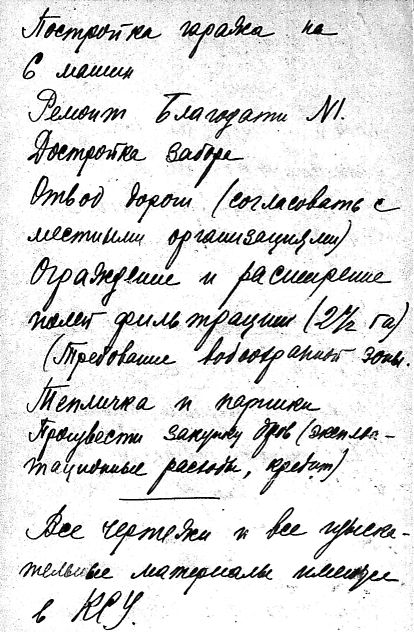 Постройка гаража на
6 машин
Ремонт Благодати №1.
Достройка забора
Отвод дороги (согласовать с
местными организациями)
Ограждение и расширение
полей фильтрации (2½ га)
(Требование водоохранной зоны.
Тепличка и парники
Произвести закупку дров (эксплоа-
тационные расходы, кредит)
Все чертежи и все изыска-
тельные материалы имеются
в КСУ.